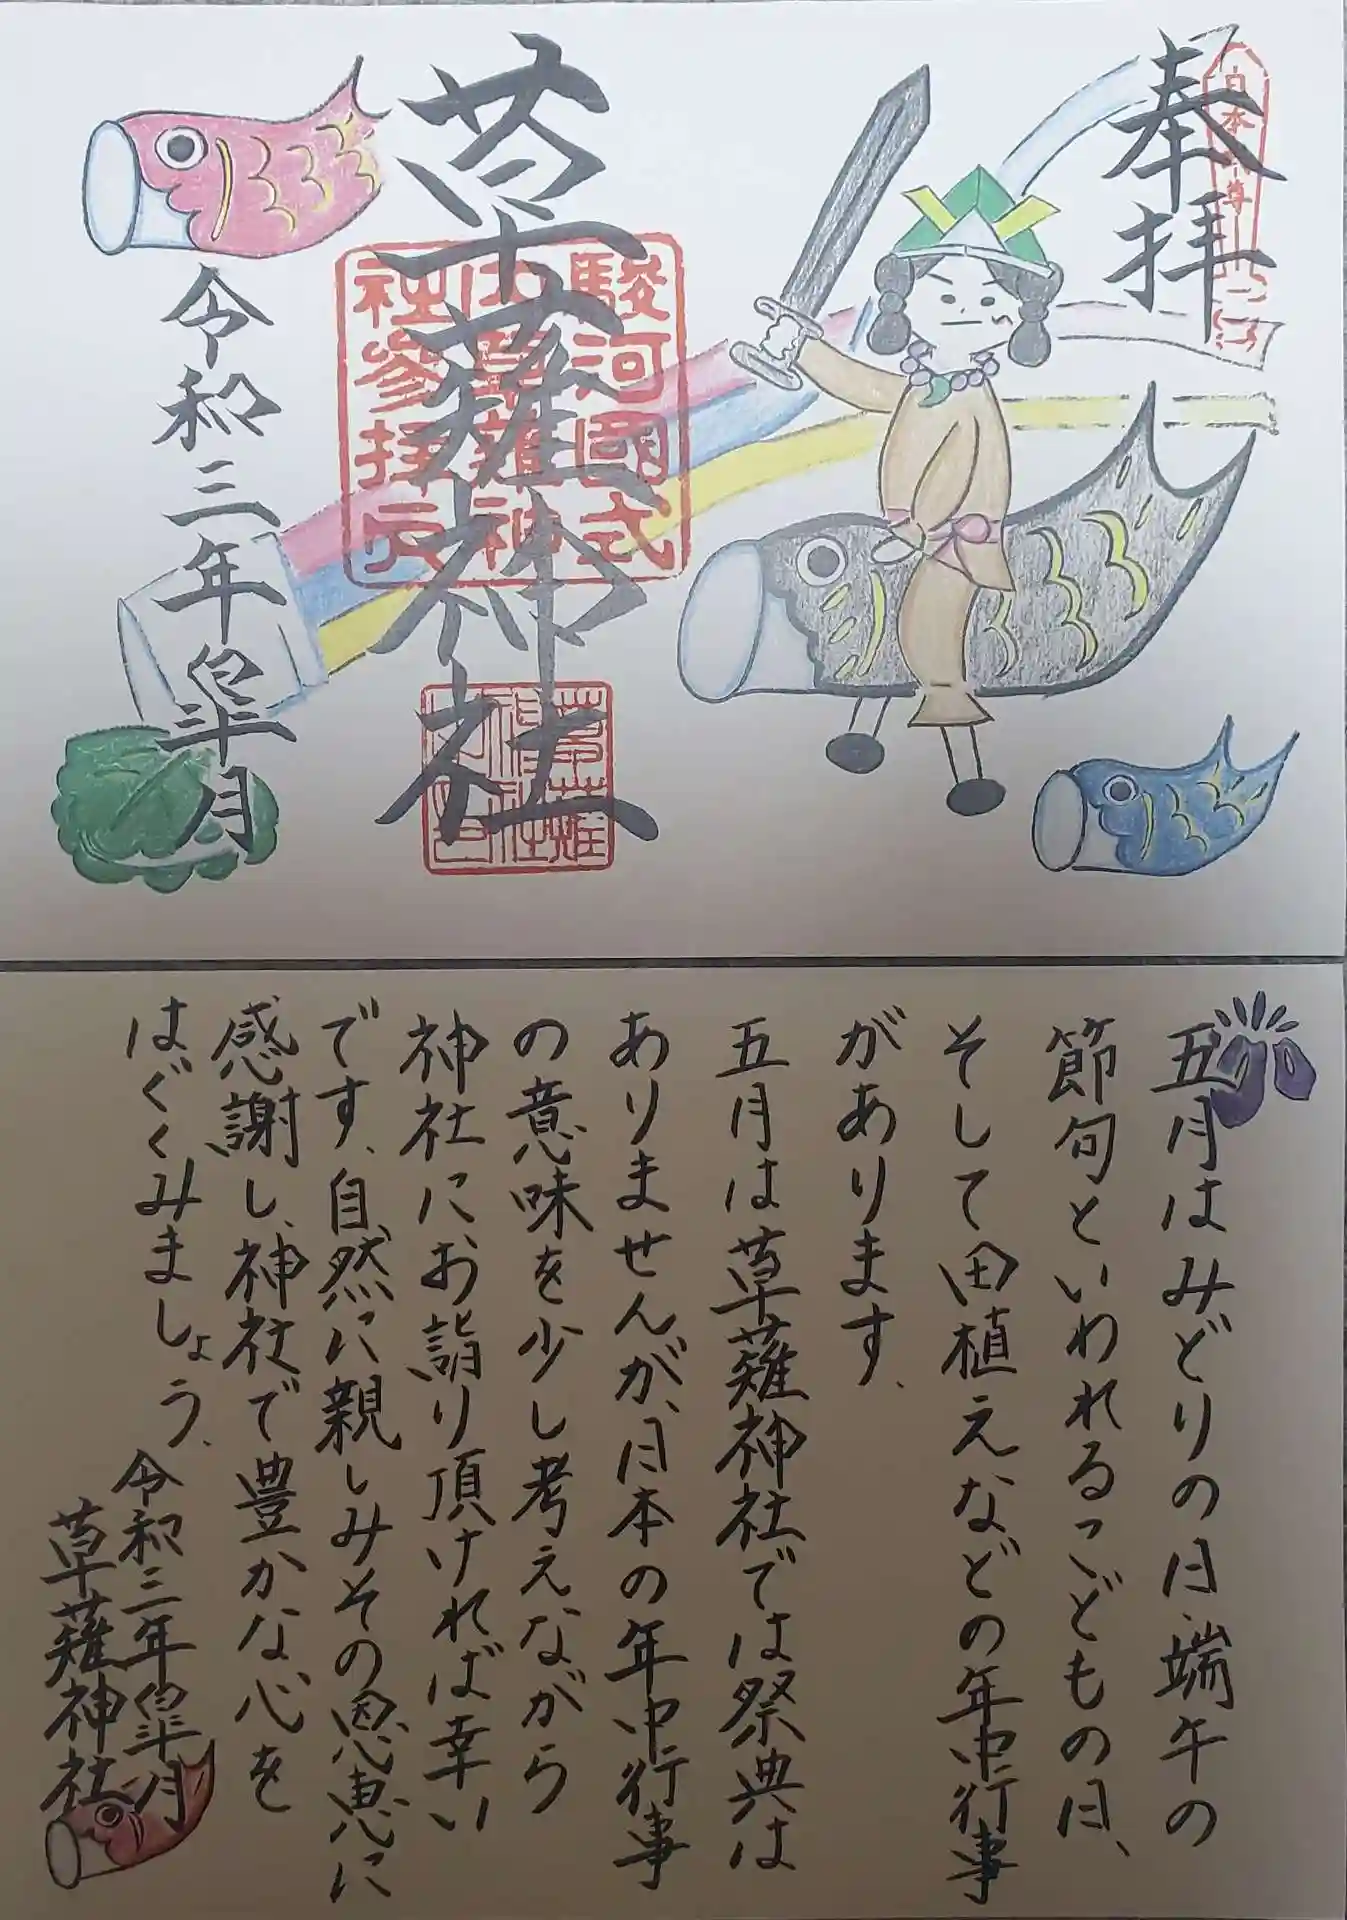 奉拝
駿河國式
社参拝
草薙神社
令和三年皐月
五月はみどりの日、端午の
節句といわれるこどもの日、
そして田植えなどの年中行事
があります。
五月は草薙神社では祭典は
ありませんが、日本の年中行事
の意味を少し考えながら
神社にお詣り頂ければ幸い
です、自然に親しみその恩恵に
感謝し、神社で豊かな心を
はぐくみましょう。
令和三年皐月
草薙神社